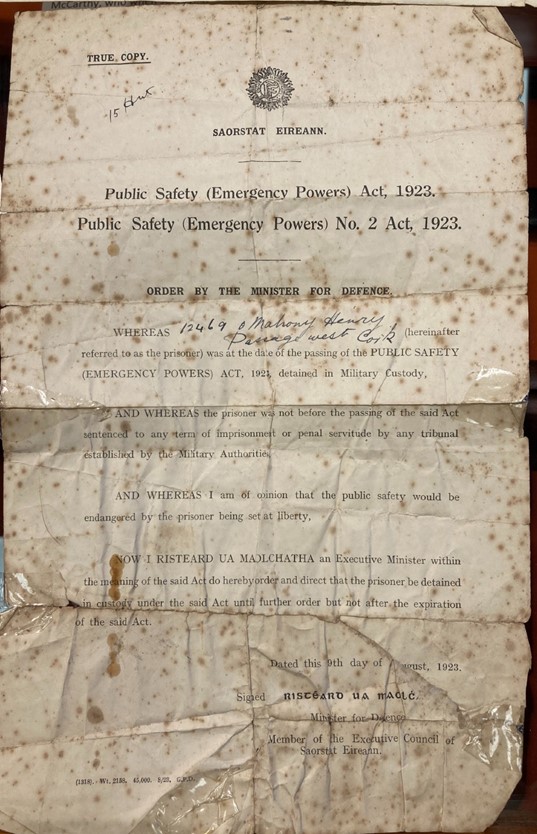 McCarthy, who
TRUE COPY.
15 Hut
SAORSTAT EIREANN.
Public Safety (Emergency Powers) Act, 1923.
Public Safety (Emergency Powers) No. 2 Act, 1923.
ORDER BY THE MINISTER FOR DEFENCE.
WHEREAS 12469 O Mahony Henry
Passage west Cork (hereinafter
referred to as the prisoner) was at the date of the passing of the PUBLIC SAFETY
(EMERGENCY POWERS) ACT, 1923, detained in Military Custody,
AND WHEREAS the prisoner was not before the passing of the said Act
sentenced to any term of imprisonment or penal servitude by any tribunal
established by the Military Authorities,
AND WHEREAS I am of opinion that the public safety would be
endangered by the prisoner being set at liberty,
NOW I RISTEARD UA MAOLCHATHA an Executive Minister within
the meaning of the said Act do hereby order and direct that the prisoner be detained
in custody under the said Act until further order but not after the expiration
of the said Act.
Dated this 9th day of August, 1923.
Signed RISTEÁRD UA MAOLĊ.
Minister for Defence
Member of the Executive Council of
Saorstat Eireann.
(1818). Wt. 2158. 45,000. 8/23,